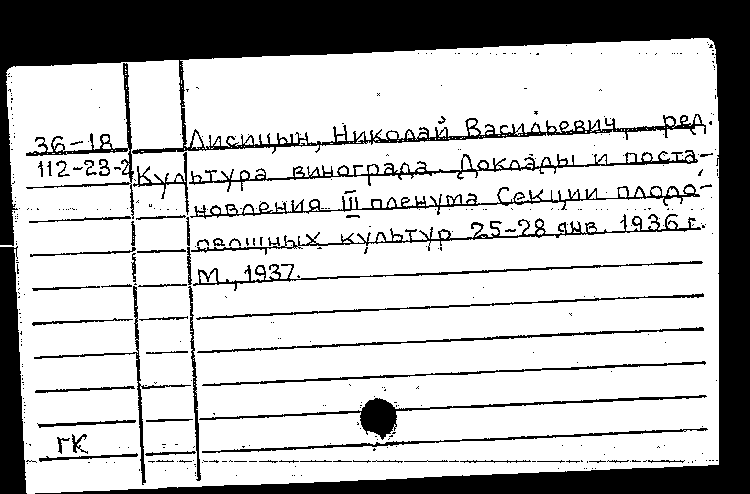 36-18 Лисицын, Николай Васильевич, ред.
112-23-2 Культура винограда. Доклады и поста-
новления III пленума Секции плодо-
овощных культур 25-28 янв. 1936 г.
М., 1937.
ГК